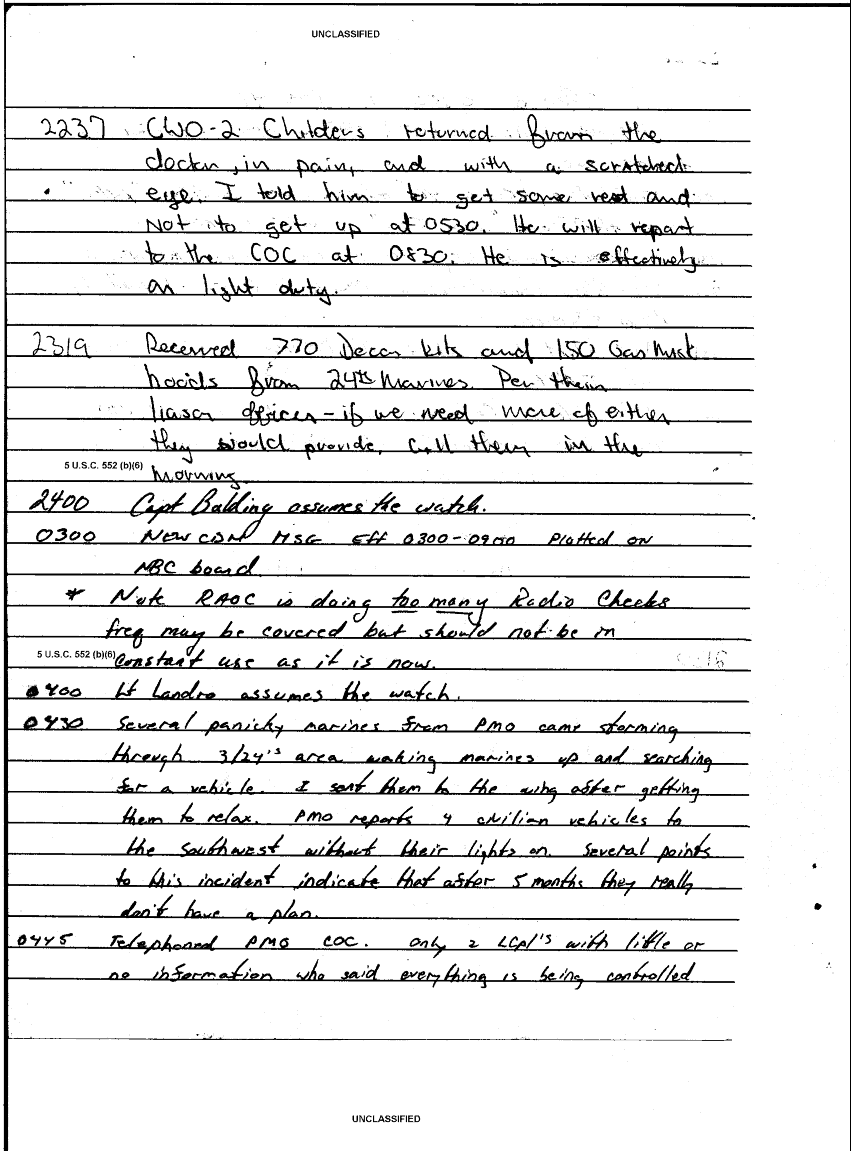 UNCLASSIFIED
2237 CWO-2 Childers returned from the
doctor, in pain, and with a scratched
eye. I told him to get some rest and
Not to get up at 0530. He will report
to the COC at 0830. He is effectively
on light duty.
2319 Received 770 Decon kits and 150 Gas Mask
hoods from 24th Marines. Per their
liason officer - if we need more of either
they would provide, Call them in the
5 U.S.C. 552 (b)(6) Morning.
2400 Capt Balding assumes the watch.
0300 New CDM MSG Eff 0300-0900 Plotted on
NBC board.
* Note RAOC is doing too many Radio Checks
freq may be covered but should not be in
5 U.S.C. 552 (b)(6) Constant use as it is now.
0400 Lt Landro assumes the watch.
0430 Several panicky marines from PMO came storming
through 3/24's area waking marines up and searching
for a vehicle. I sent them to the wing after getting
them to relax. PMO reports 4 civilian vehicles to
the southwest without their lights on. Several points
to this incident indicate that after 5 months they really
don't have a plan.
0445 Telephoned PMO COC. Only 2 LCpl's with little or
no information who said everything is being controlled
UNCLASSIFIED